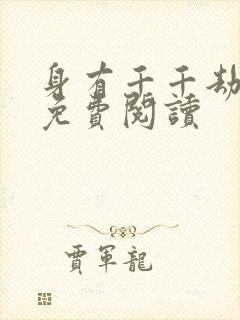 身有千千劫
免費閱讀
賈軍龍